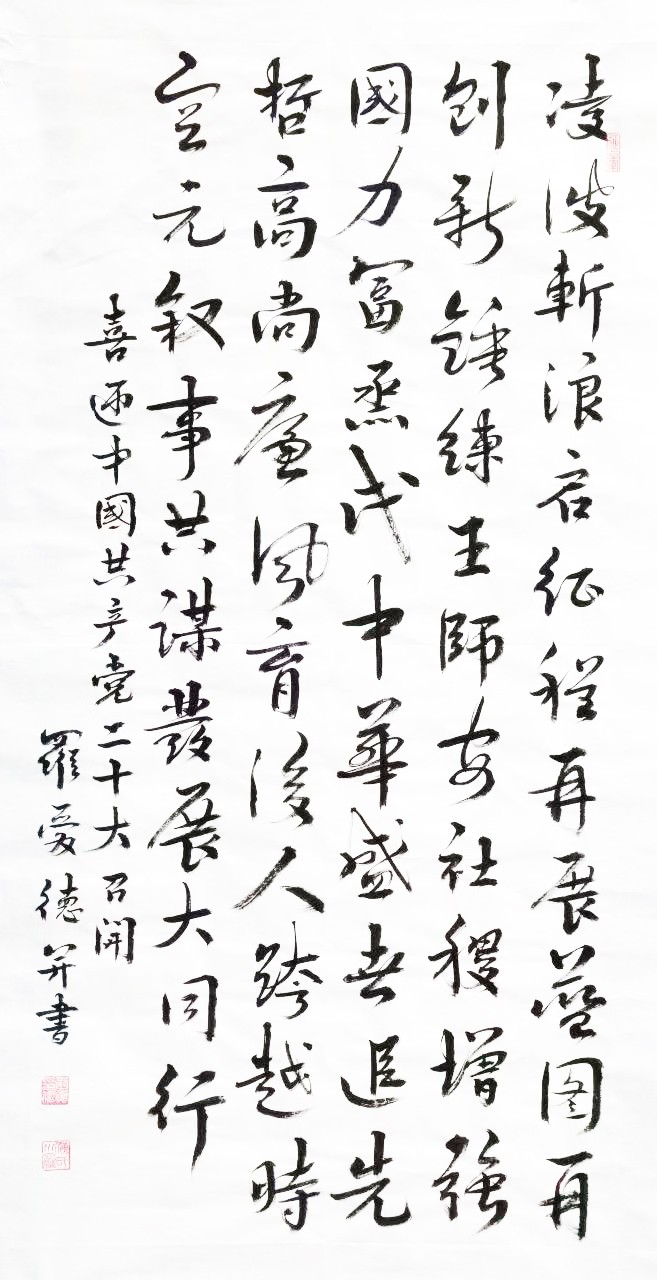 凌波斬浪启征程再展藍图再
創新錘練王師安社稷增強
國力富烝民中華盛世追先
哲高尚廉風育後人跨越時
空元叙事共謀發展大同行
喜迎中國共产党二十大召開
羅愛德并書